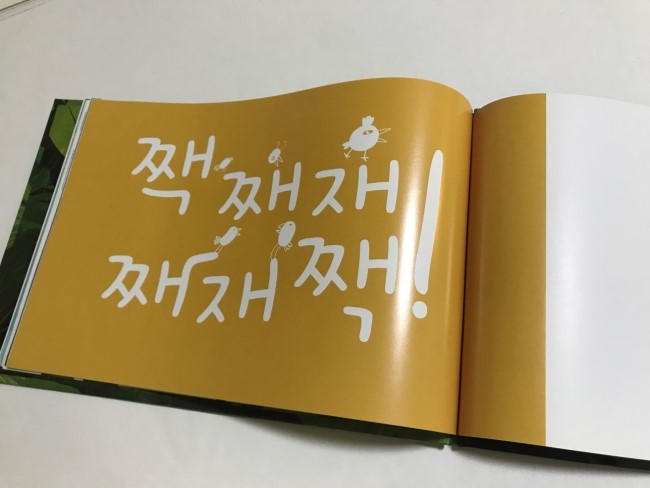 짹 째재
째재짹!